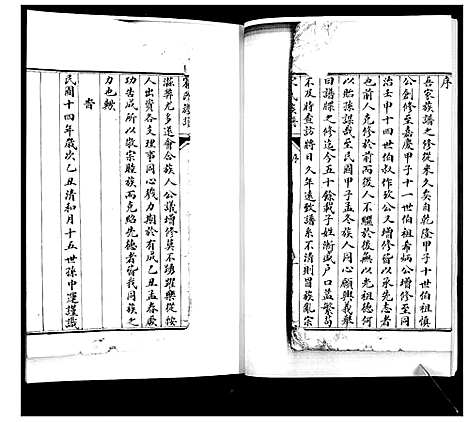 序
吾家族譜之修從來久矣自乾隆甲子十世伯祖慎
公創修至嘉慶甲子十一世伯祖希炳公增修至同
治壬甲十四世伯叔作玫公又增修皆以承先志者
也前人克修於前而後人不繼於後無以光祖德何
以貽孫謀哉至民國甲子孟冬族人同心願興我舉
曰譜自同治迄今五十餘載子姓漸增户口益繁苟
不及時查訪將日久年遠致譜系不清則冒族亂宗
滋弊尤多遂會合族人公議增修莫不踴躍樂從按
人出資各支理事同心戮力期於有成乙丑孟春厥
功告成所以敬宗睦族而克紹先德者皆我同族之
力也歟
旹
民國十四年歲次乙丑清和月十五世孫中運謹識